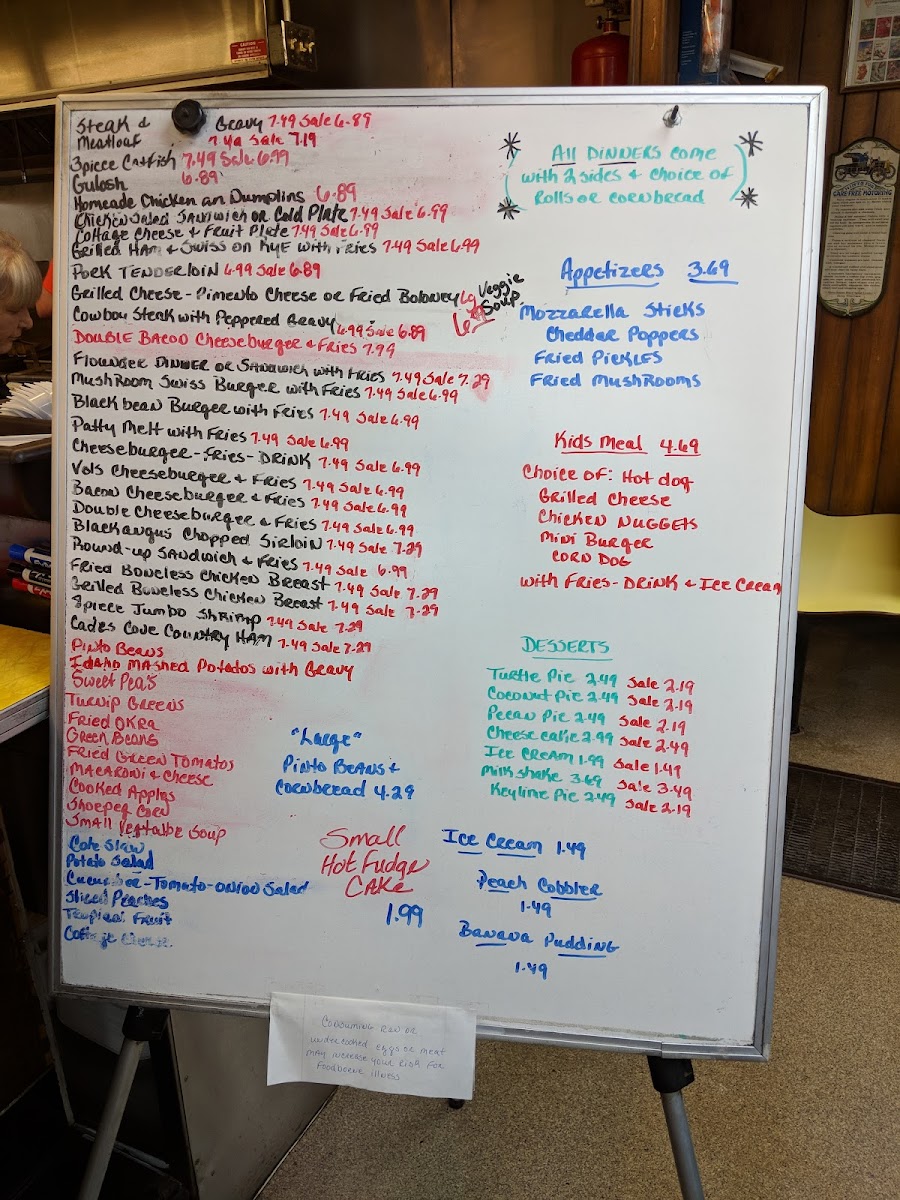 Steak & Gravy 7.49 Sale 6.89
Meatloaf 7.49 Sale 7.19
3piece Catfish 7.49 Sale 6.99
Gulosh 6.89
Homeade Chicken an Dumplins 6.89
Chicken Salad Sandwich or Cold Plate 7.49 Sale 6.99
Cottage Cheese & Fruit Plate 7.49 Sale 6.99
Grilled Ham & Swiss on Rye with Fries 7.49 Sale 6.99
Pork Tenderloin 6.99 Sale 6.89
Grilled Cheese - Pimento Cheese or Fried Boloney Lg Veggie Soup
Cowboy Steak with Peppered Gravy 6.99 Sale 6.89
Double Bacoo Cheeseburger & Fries 7.99
Flounder Dinner or Sandwich with Fries 7.49 Sale 7.29
Mushroom Swiss Burger with Fries 7.49 Sale 6.99
Black bean Burger with Fries 7.49 Sale 6.99
Patty Melt with Fries 7.49 Sale 6.99
Cheeseburger - Fries - Drink 7.49 Sale 6.99
Vols Cheeseburger & Fries 7.49 Sale 6.99
Bacon Cheeseburger & Fries 7.49 Sale 6.99
Double Cheeseburger & Fries 7.49 Sale 6.99
Black angus Chopped Sirloin 7.49 Sale 7.29
Round-up Sandwich & Fries 7.49 Sale 6.99
Fried Boneless Chicken Breast 7.49 Sale 7.29
Grilled Boneless Chicken Breast 7.49 Sale 7.29
8piece Jumbo Shrimp 7.49 Sale 7.29
Cades Cove Country Ham 7.49 Sale 7.29
Pinto Beans
Idaho Mashed Potatos with Gravy
Sweet Pea's
Turnip Greens
Fried Okra
Green Beans
Fried Green Tomatos
Macaroni & Cheese
Cooked Apples
Shoepeg Corn
Small Vegetalbe Soup
Cole Slaw
Potato Salad
Cucumber-Tomato-onion Salad
Sliced Peaches
Tropical Fruit
Cottage Cheese
"Large"
Pinto Beans +
Cornbread 4.29
Small
Hot Fudge
Cake
1.99
All Dinners come
with 2 sides + choice of
Rolls or cornbread
Appetizers 3.69
Mozzarella Sticks
Cheddar Poppers
Fried Pickles
Fried Mushrooms
Kids Meal 4.69
Choice of: Hot dog
Grilled Cheese
Chicken Nuggets
Mini Burger
Corn Dog
with Fries - Drink & Ice Cream
Desserts
Turtle Pie 2.49 Sale 2.19
Coconut Pie 2.49 Sale 2.19
Pecan Pie 2.49 Sale 2.19
Cheese cake 2.99 Sale 2.49
Ice Cream 1.99 Sale 1.49
Milk shake 3.69 Sale 3.49
Keylime Pie 2.49 Sale 2.19
Ice Cream 1.49
Peach Cobbler
1.49
Banana Pudding
1.49
Consuming raw or
undercooked eggs or meat
may increase your risk for
foodborne illness
CAREFREE MOTORING